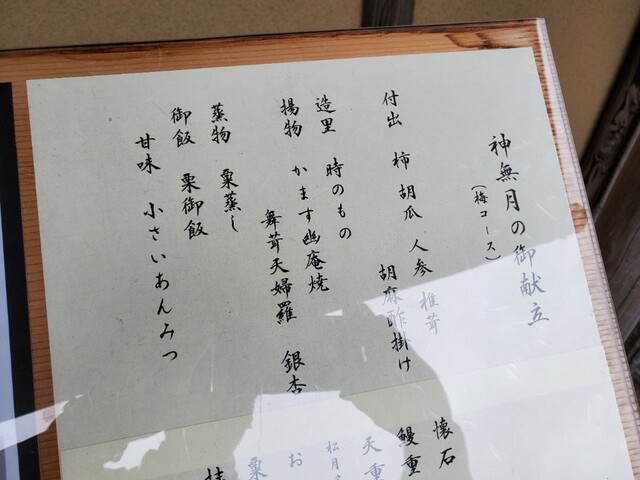 神無月の御献立
(梅コース)
付出 柿 胡瓜 人参 椎茸
胡麻酢掛け
造里 時のもの
揚物 かます幽庵焼
舞茸天婦羅 銀杏
蒸物 栗蒸し
御飯 栗御飯
甘味 小さいあんみつ
懐石
鰻重
天重
松月
お
栗